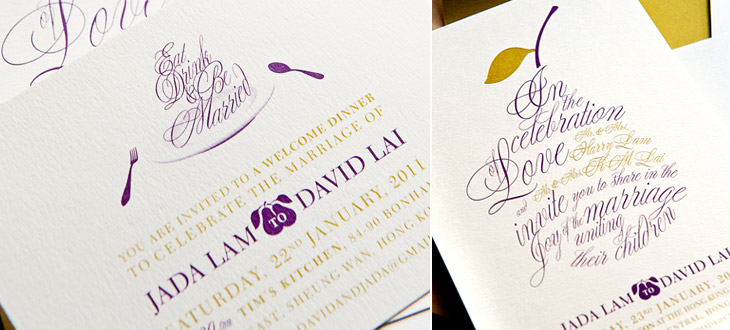 of
Love
Eat
Drink
& Be
Married
YOU ARE INVITED TO A WELCOME DINNER
TO CELEBRATE THE MARRIAGE OF
JADA LAM TO DAVID LAI
SATURDAY, 22ND JANUARY, 2011
TIM'S KITCHEN, 84-90 BONHAM
EAST, SHEUNG WAN, HONG KONG
DAVIDANDJADA@GMA
In
the
celebration
of Love
Mr. & Mrs.
Harry Lam
and Mr. & Mrs.
K.M. Lai
invite you to share in the
Joy of the marriage
uniting
their children
JADA LAM TO DAVID LAI
SUNDAY, 23RD JANUARY, 20